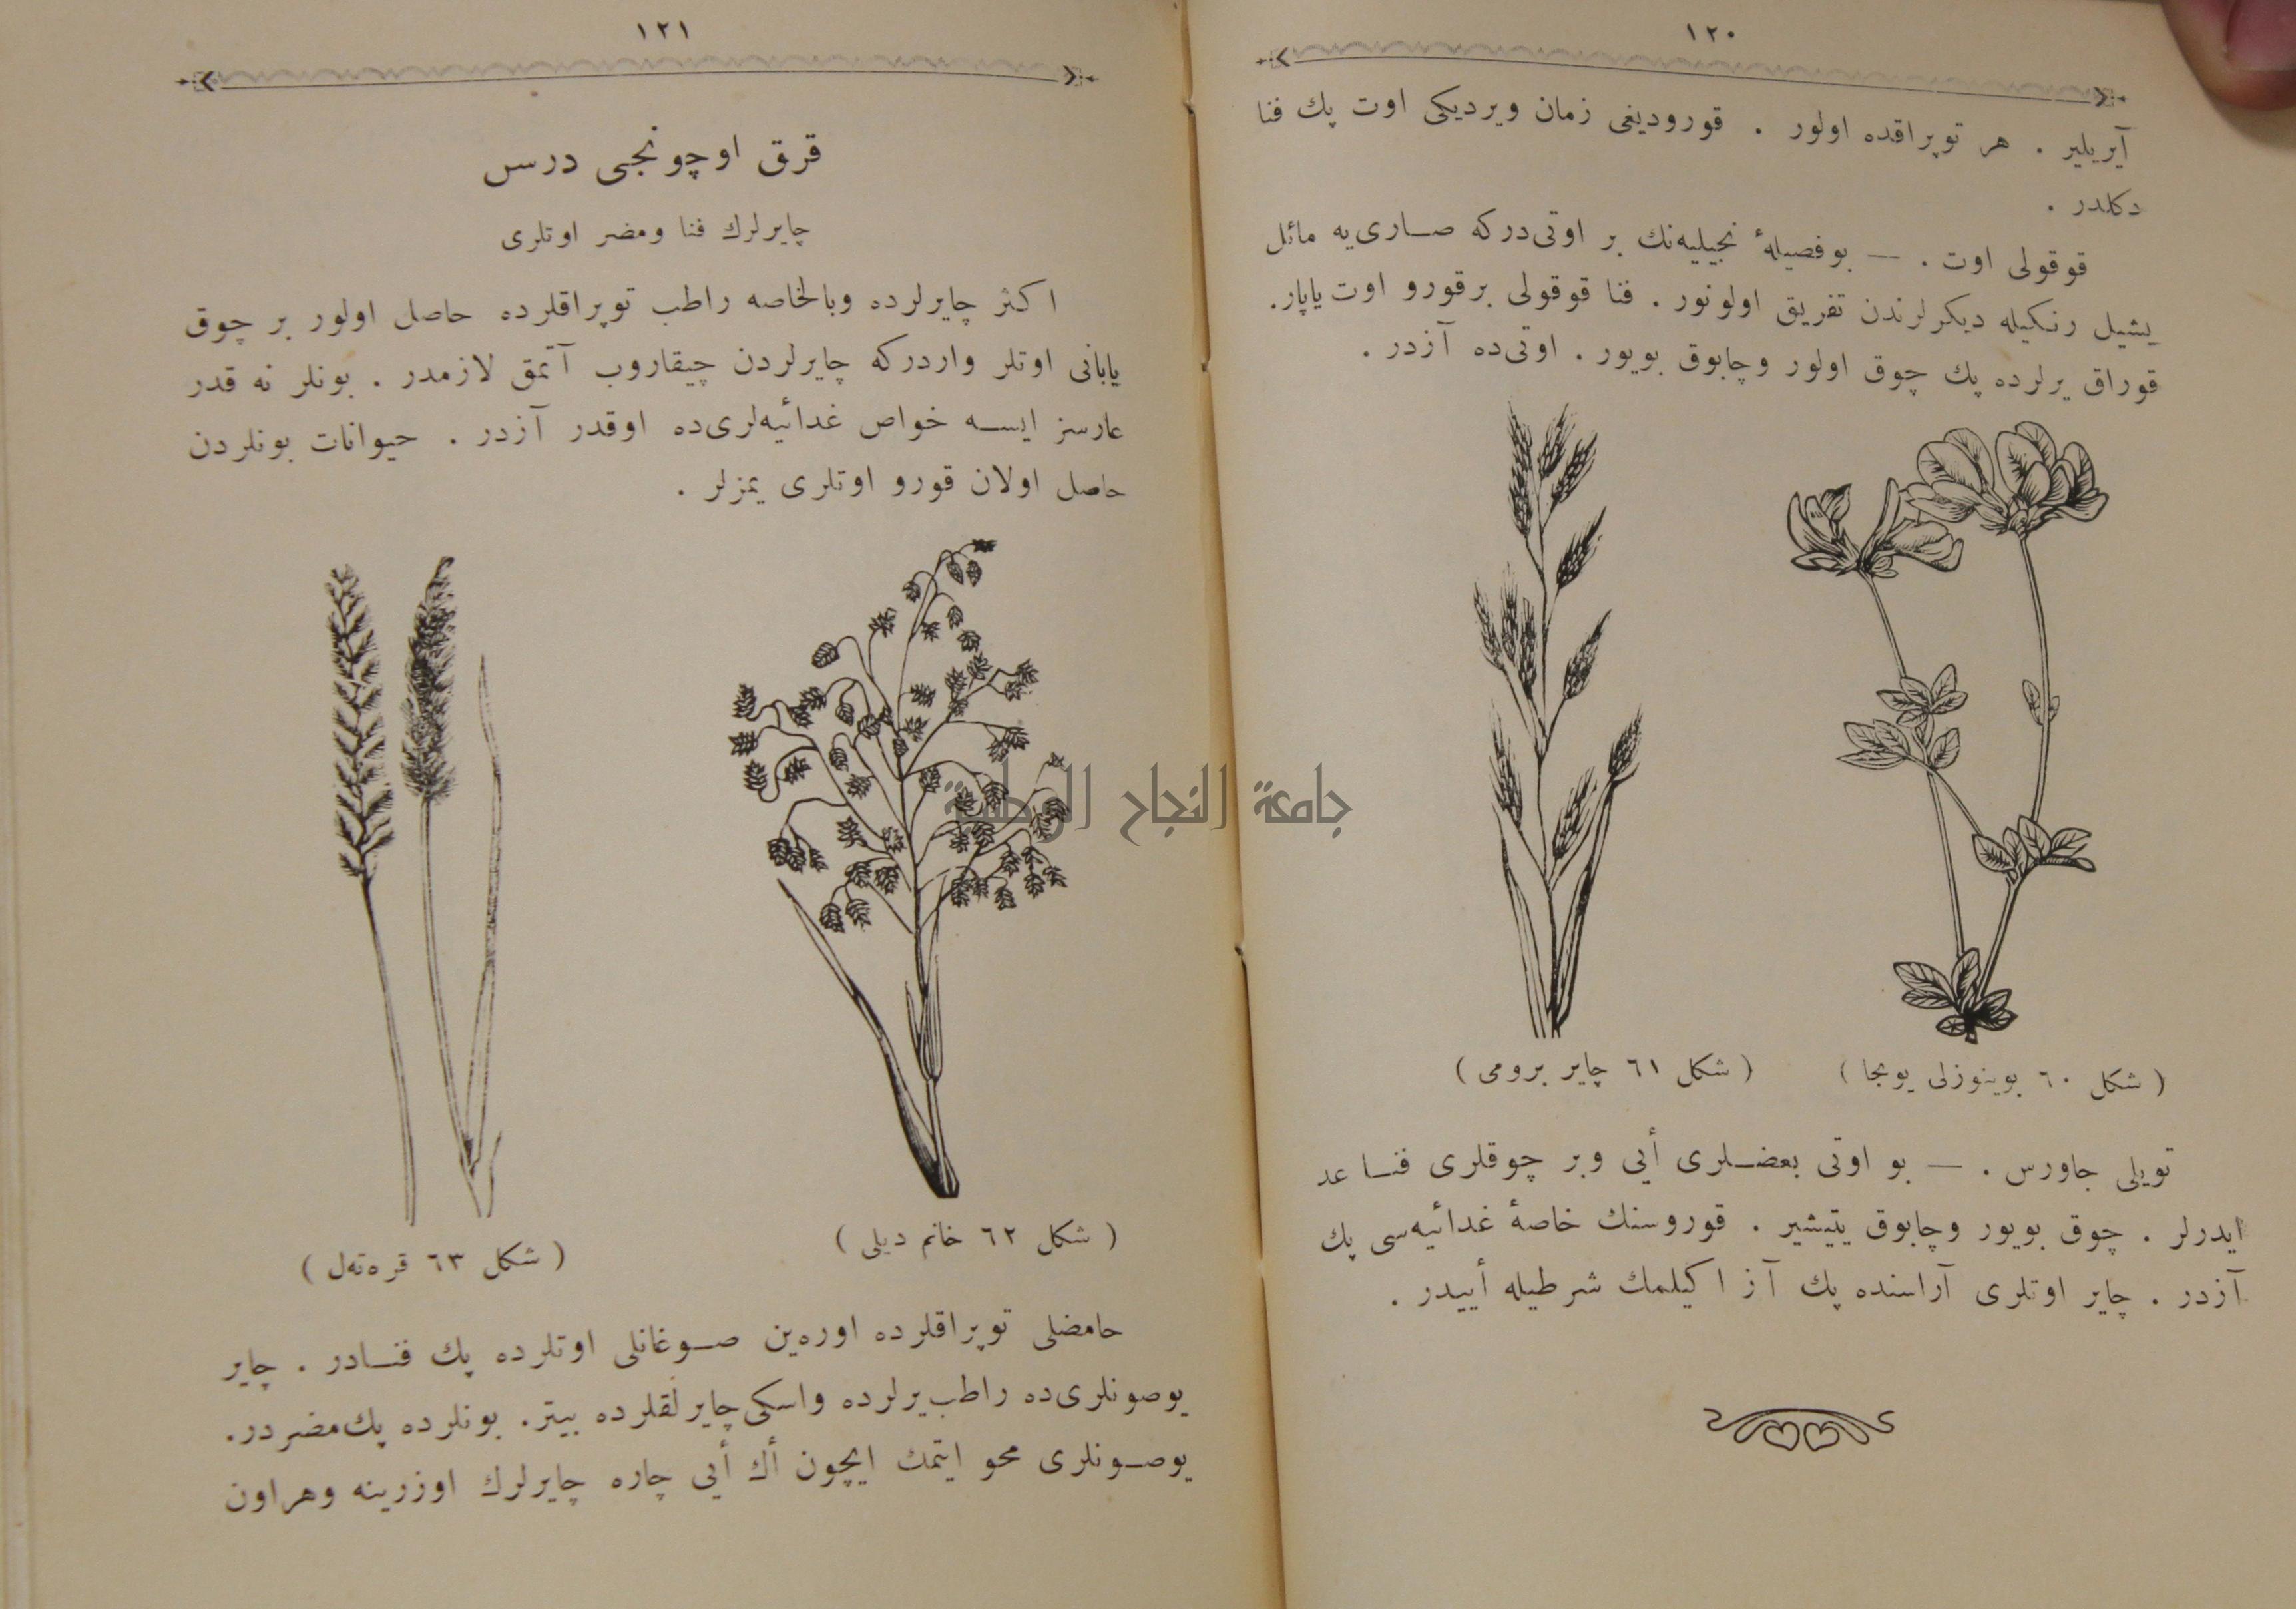 ١٢٠
آيريلير . هر توپراقده اولور . قوروديغى زمان ويرديكى اوت پك فنا
دكلدر .
قوقولى اوت . — بوفصيلهٔ نجيليه‌نك بر اوتى‌دركه صارى‌يه مائل
يشيل رنكيله ديكرلرندن تفريق اولونور . فنا قوقولى برقورو اوت ياپار.
قوراق يرلرده پك چوق اولور وچابوق بويور . اوتى‌ده آزدر .
( شكل ٦٠ بوينوزلى يونجا )
( شكل ٦١ چاير برومى )
تويلى جاورس . — بو اوتى بعضلرى أيى وبر چوقلرى فنا عد
ايدرلر . چوق بويور وچابوق يتيشير . قوروسنك خاصهٔ غدائيه‌سى پك
آزدر . چاير اوتلرى آراسنده پك آز اكيلمك شرطيله أييدر .
١٢١
قرق اوچونجى درس
چايرلرك فنا ومضر اوتلرى
اكثر چايرلرده وبالخاصه راطب توپراقلرده حاصل اولور بر چوق
يابانى اوتلر واردركه چايرلردن چيقاروب آتمق لازمدر . بونلر نه قدر
عارسز ايسه خواص غدائيه‌لرى‌ده اوقدر آزدر . حيوانات بونلردن
حاصل اولان قورو اوتلرى يمزلر .
( شكل ٦٢ خانم ديلى )
( شكل ٦٣ قره‌ته‌ل )
حامضلى توپراقلرده اوره‌ين صوغانلى اوتلرده پك فنادر . چاير
يوصونلرى‌ده راطب يرلرده واسكى چايرلقلرده بيتر. بونلرده پك مضردر.
يوصونلرى محو ايتمك ايچون أك أيى چاره چايرلرك اوزرينه وهر اون
جامعة النجاح الوطنية